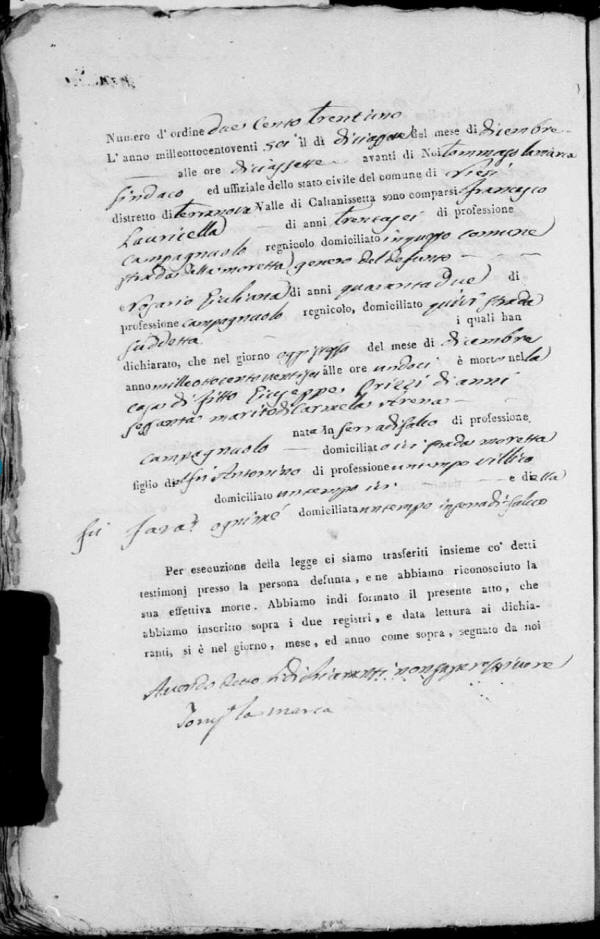 Numero d' ordine due cento trentuno
L' anno milleottocentoventi sei il dì diciassette del mese di dicembre
alle ore diciassette avanti di Noi Tommaso Lamarca
Sindaco ed uffiziale dello stato civile del comune di Riesi
distretto di Terranova Valle di Caltanissetta sono comparsi Francesco
Lauricella di anni trentasei di professione
campagnuolo regnicolo domiciliato in questo comune
strada della moretta genero del defunto
e Rosario Giuliana di anni quarantadue di
professione campagnuolo regnicolo, domiciliato quivi strada
suddetta i quali han
dichiarato, che nel giorno oggi del mese di dicembre
anno milleottocento ventisei alle ore undeci è morto nella
casa di fitto Giuseppe di anni
sessanta marito di Carmela Arena
nato in Serradifalco di professione
campagnuolo domiciliato ivi strada moretta
figlio del fu Antonino di professione un tempo villico
domiciliato un tempo ivi e della
fu domiciliata un tempo in Serradifalco
Per esecuzione della legge ci siamo trasferiti insieme co' detti
testimonj presso la persona defunta, e ne abbiamo riconosciuto la
sua effettiva morte. Abbiamo indi formato il presente atto, che
abbiamo inscritto sopra i due registri, e data lettura ai dichia-
ranti, si è nel giorno, mese, ed anno come sopra, segnato da noi
Avendo detto i dichiaranti non saper scrivere
Tom.so la marca